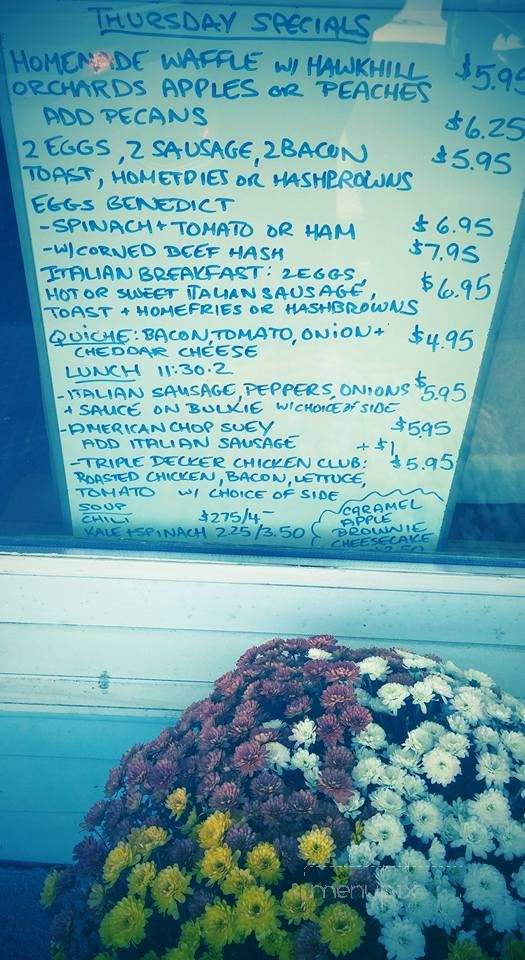 THURSDAY SPECIALS
HOMEMADE WAFFLE W/ HAWKHILL $5.95
ORCHARDS APPLES OR PEACHES
ADD PECANS $6.25
2 EGGS, 2 SAUSAGE, 2 BACON $5.95
TOAST, HOMEFRIES OR HASHBROWNS
EGGS BENEDICT
-SPINACH + TOMATO OR HAM $6.95
-W/CORNED BEEF HASH $7.95
ITALIAN BREAKFAST: 2 EGGS, $6.95
HOT OR SWEET ITALIAN SAUSAGE,
TOAST + HOMEFRIES OR HASHBROWNS
QUICHE: BACON, TOMATO, ONION + $4.95
CHEDDAR CHEESE
LUNCH 11:30-2
-ITALIAN SAUSAGE, PEPPERS, ONIONS $5.95
+ SAUCE ON BULKIE W/CHOICE OF SIDE
-AMERICAN CHOP SUEY $5.95
ADD ITALIAN SAUSAGE +$1
-TRIPLE DECKER CHICKEN CLUB: $5.95
ROASTED CHICKEN, BACON, LETTUCE,
TOMATO W/ CHOICE OF SIDE
SOUP
CHILI $2.75/4-
KALE + SPINACH 2.25/3.50
CARAMEL
APPLE
BROWNIE
CHEESECAKE
menupix